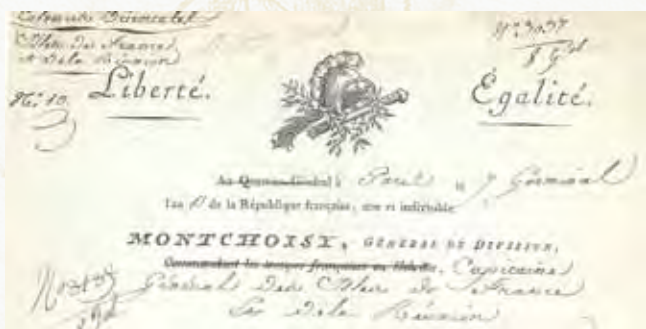 Colonies Orientales
Isles de France
et de la Réunion
N.º 10.
Liberté.
Égalité.
Au Quartier-Général à Paris le 7 Germinal
l'an de la République française, une et indivisible
MONTCHOISY, GÉNÉRAL DE DIVISION,
Commandant les troupes françaises en Helvétie, Capitaine
Général des Isles de France
et de la Réunion